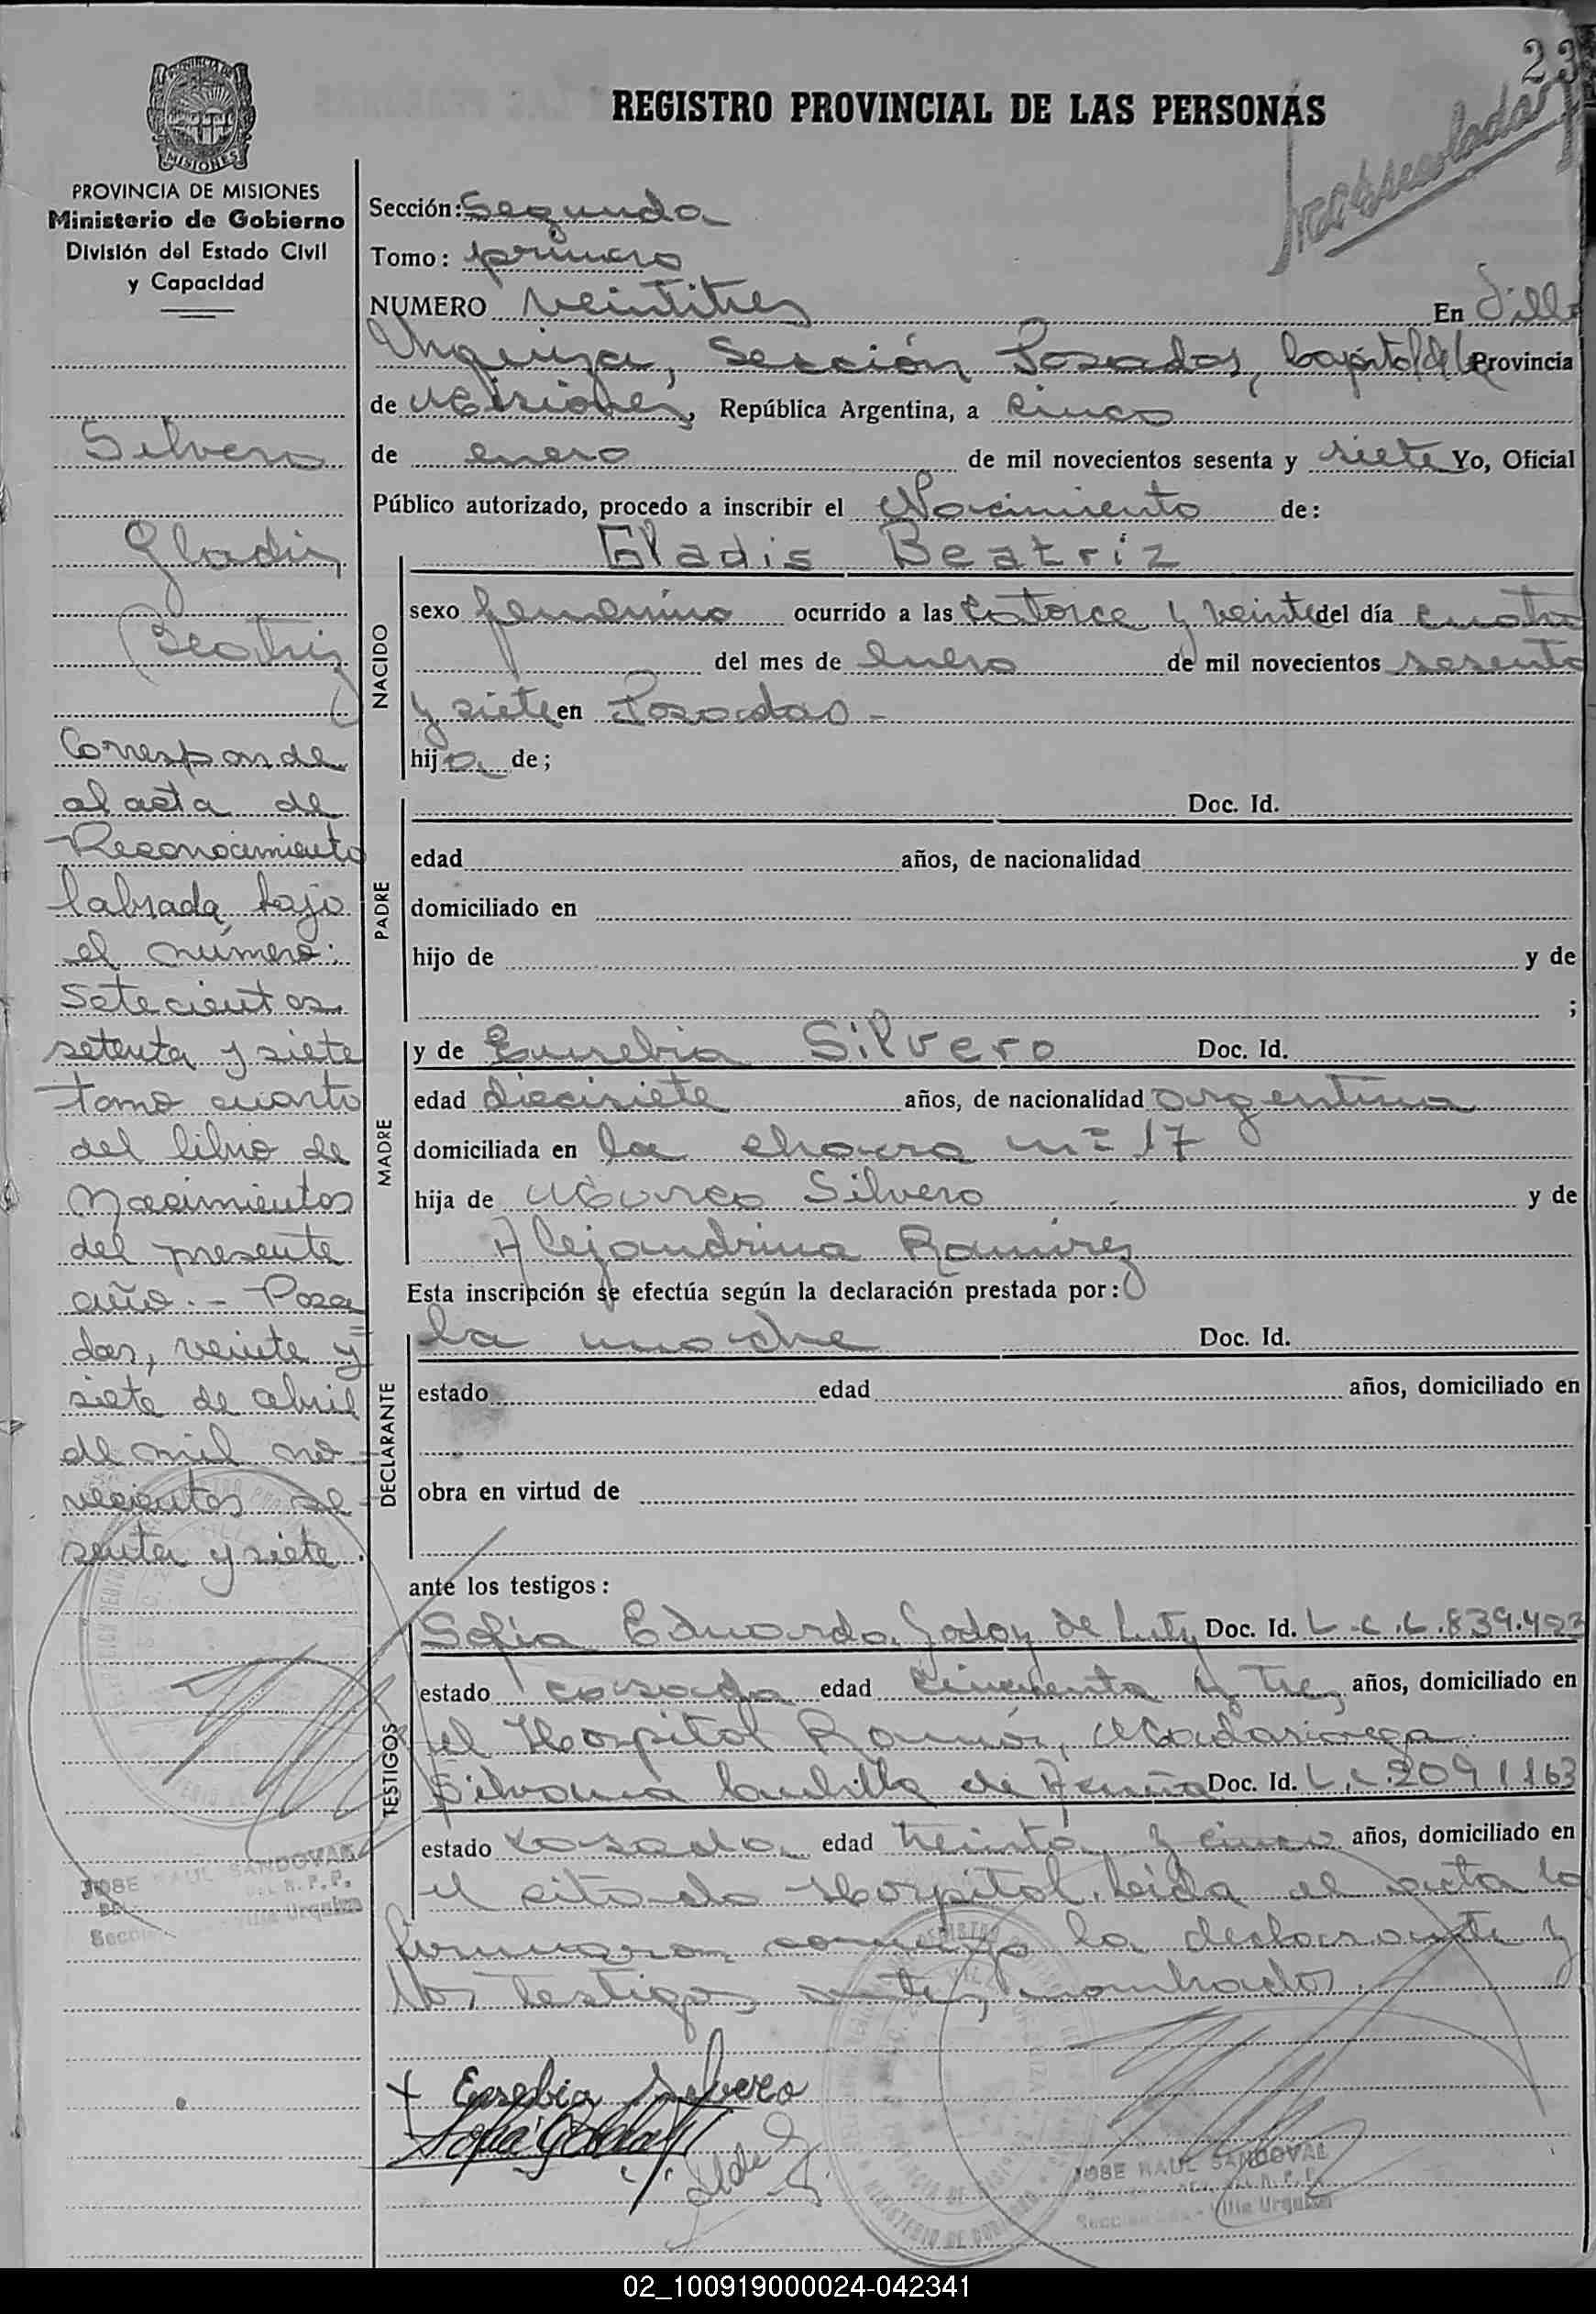 23
REGISTRO PROVINCIAL DE LAS PERSONAS
MISIONES
PROVINCIA DE MISIONES
Ministerio de Gobierno
División del Estado Civil
y Capacidad
Silvero
Gladis
Beatriz
Corresponde
al acta de
Reconocimiento
labrada bajo
el número:
Setecientos
setenta y siete
tomo cuarto
del libro de
Nacimientos
del presente
año.- Posa=
das, veinte y
siete de abril
de mil no-
vecientos se-
senta y siete.
JOSE RAUL SANDOVAL
Villa Urquiza
Sección: Segunda
Tomo: primero
NUMERO veintitres En Villa
Urquiza, Sección Posadas, Capital de la Provincia
de Misiones, República Argentina, a cinco
de enero de mil novecientos sesenta y siete Yo, Oficial
Público autorizado, procedo a inscribir el Nacimiento de:
Gladis Beatriz
NACIDO
sexo femenino ocurrido a las catorce y veinte del día cuatro
del mes de enero de mil novecientos sesenta
y siete en Posadas -
hija de;
PADRE
Doc. Id.
edad años, de nacionalidad
domiciliado en
hijo de y de
;
MADRE
y de Eusebia Silvero Doc. Id.
edad diecisiete años, de nacionalidad argentina
domiciliada en la chacra nº 17
hija de Marco Silvero y de
Alejandrina Ramirez
Esta inscripción se efectúa según la declaración prestada por:
DECLARANTE
la madre Doc. Id.
estado edad años, domiciliado en
obra en virtud de
ante los testigos:
TESTIGOS
Sofia Eduarda Godoy de Doc. Id. L.C.6.839.423
estado casada edad cincuenta y tres años, domiciliado en
el Hospital Ramón Madariaga
Silvana de Doc. Id. L.C.2091163
estado casada edad treinta y cinco años, domiciliado en
el citado Hospital. Leida el acta la
firmaron conmigo la declarante y
los testigos antes nombrados.
Eusebia Silvero
JOSE RAUL SANDOVAL
Villa Urquiza
02_100919000024-042341